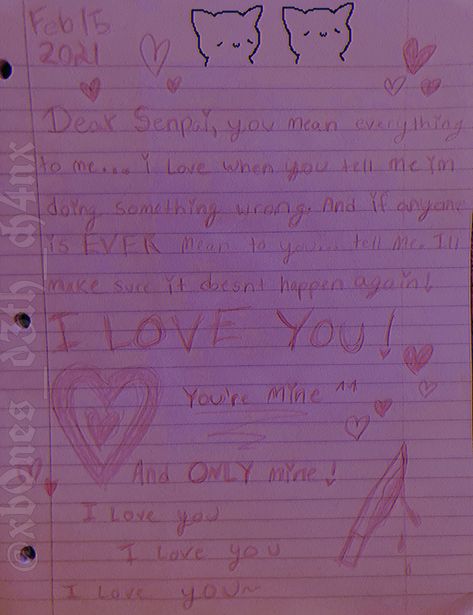 Feb 15
2021
Dear Senpai, you mean everything
to me.... i Love when you tell me i'm
doing something wrong. And if anyone
is EVER mean to you.... tell me. I'll
make sure it doesnt happen again!
I LOVE YOU!
You're mine ^^
And ONLY mine!
I Love you
I Love you
I Love you~
@xb0nes_d34th_ch4nx